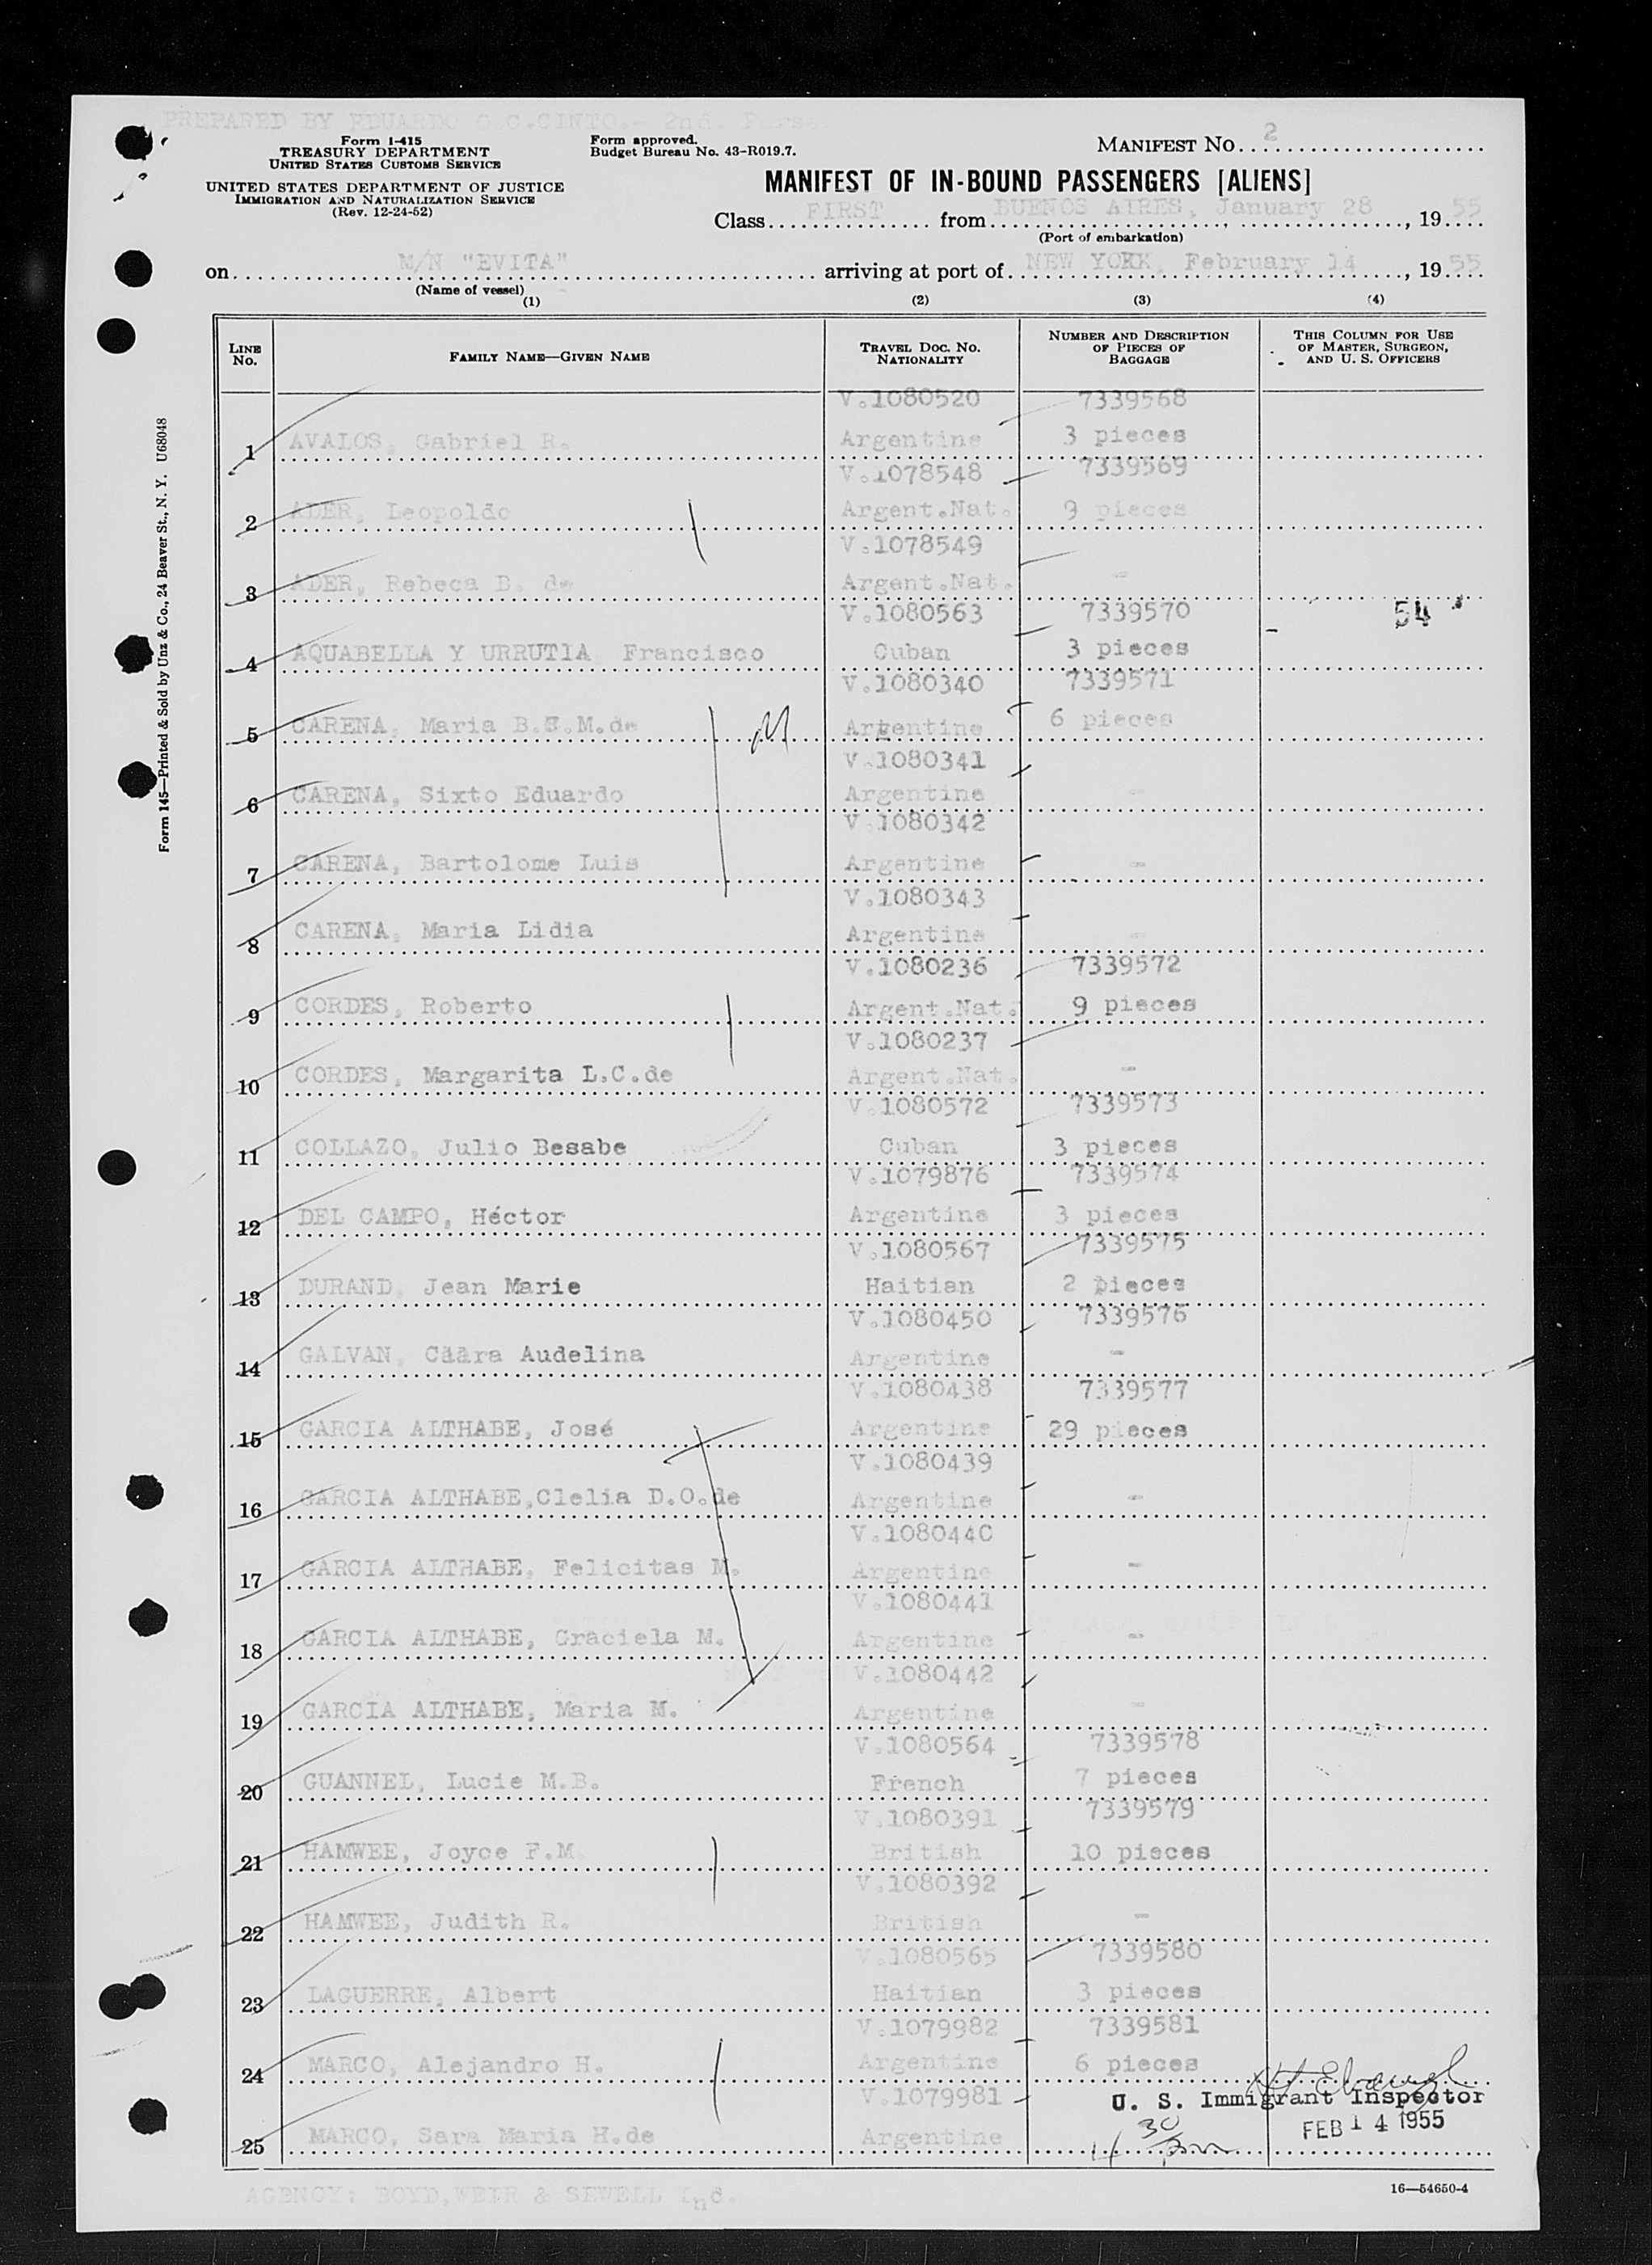 PREPARED BY EDUARDO C.C.CINTO.- 2nd. Purser
Form I-415
TREASURY DEPARTMENT
UNITED STATES CUSTOMS SERVICE
UNITED STATES DEPARTMENT OF JUSTICE
IMMIGRATION AND NATURALIZATION SERVICE
(Rev. 12-24-52)
Form approved.
Budget Bureau No. 43-R019.7.
MANIFEST NO. 2
MANIFEST OF IN-BOUND PASSENGERS [ALIENS]
Class FIRST from BUENOS AIRES, January 28, 1955
(Port of embarkation)
on M/N "EVITA" arriving at port of NEW YORK, February 14, 1955
(Name of vessel)
(1) (2) (3) (4)
LINE NO. FAMILY NAME—GIVEN NAME TRAVEL DOC. NO. NATIONALITY NUMBER AND DESCRIPTION OF PIECES OF BAGGAGE THIS COLUMN FOR USE OF MASTER, SURGEON, AND U. S. OFFICERS
V.1080520 7339568
1 AVALOS, Gabriel R. Argentine 3 pieces
V.1078548 7339569
2 ADER, Leopoldo Argent.Nat. 9 pieces
V.1078549
3 ADER, Rebeca B. de Argent.Nat. -
V.1080563 7339570 54
4 AQUABELLA Y URRUTIA Francisco Cuban 3 pieces
V.1080340 7339571
5 CARENA, Maria B.E.M.de Argentine 6 pieces
V.1080341
6 CARENA, Sixto Eduardo Argentine -
V.1080342
7 CARENA, Bartolome Luis Argentine -
V.1080343
8 CARENA, Maria Lidia Argentine -
V.1080236 7339572
9 CORDES, Roberto Argent.Nat. 9 pieces
V.1080237
10 CORDES, Margarita L.C.de Argent.Nat. -
V.1080572 7339573
11 COLLAZO, Julio Besabe Cuban 3 pieces
V.1079876 7339574
12 DEL CAMPO, Héctor Argentine 3 pieces
V.1080567 7339575
13 DURAND, Jean Marie Haitian 2 pieces
V.1080450 7339576
14 GALVAN, Claara Audelina Argentine -
V.1080438 7339577
15 GARCIA ALTHABE, José Argentine 29 pieces
V.1080439
16 GARCIA ALTHABE,Clelia D.O.de Argentine -
V.1080440
17 GARCIA ALTHABE, Felicitas M. Argentine -
V.1080441
18 GARCIA ALTHABE, Graciela M. Argentine -
V.1080442
19 GARCIA ALTHABE, Maria M. Argentine -
V.1080564 7339578
20 GUANNEL, Lucie M.B. French 7 pieces
V.1080391 7339579
21 HAMWEE, Joyce F.M. British 10 pieces
V.1080392
22 HAMWEE, Judith R. British -
V.1080565 7339580
23 LAGUERRE, Albert Haitian 3 pieces
V.1079982 7339581
24 MARCO, Alejandro H. Argentine 6 pieces
V.1079981 U. S. Immigrant Inspector
30 FEB 14 1955
25 MARCO, Sara Maria H.de Argentine
AGENCY: BOYD,WEIR & SEWELL Ind.
16—54650-4
Form 145—Printed & Sold by Unz & Co., 24 Beaver St., N. Y. U68048